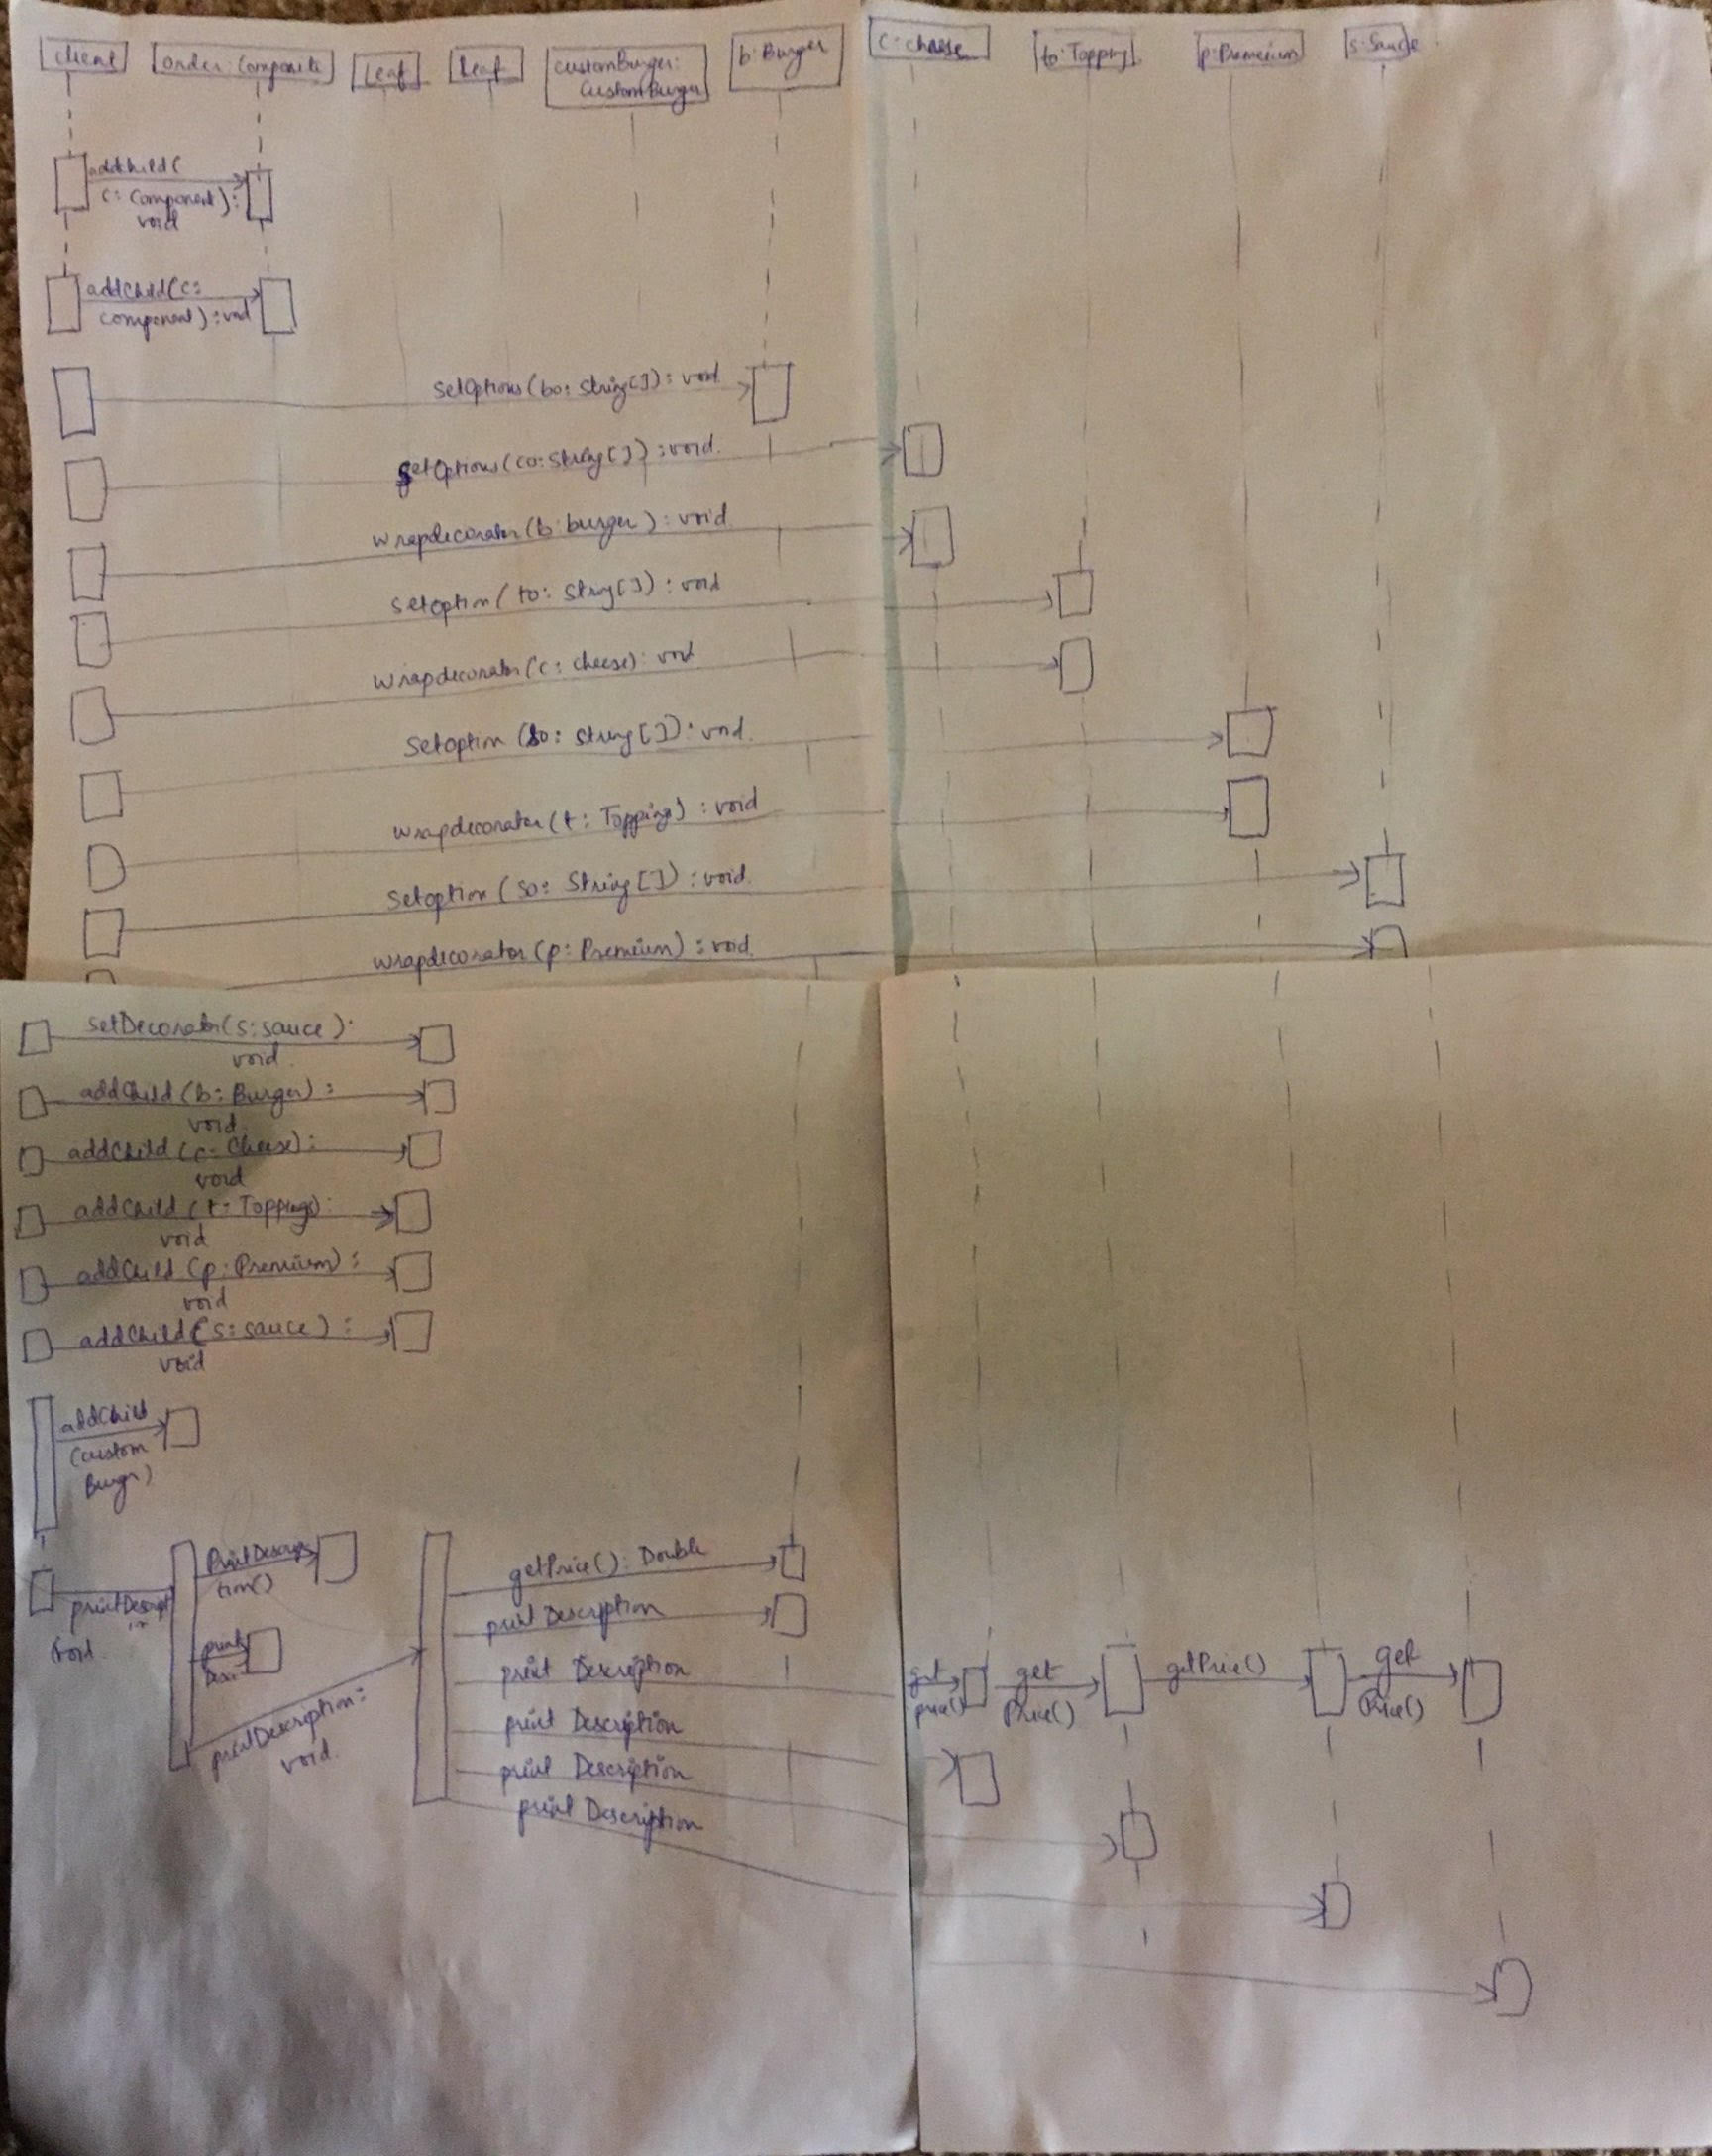 client
order: Composite
Leaf
Leaf
customBurger:
CustomBurger
b: Burger
c: cheese
to: Topping
p: Premium
s: Sauce
addchild(
c: Component):
void
addchild(c:
component): void
setOptions(bo: String[]): void
setOptions(co: String[]): void.
wrapdecorator(b: burger): void
setoption(to: String[]): void
wrapdecorator(c: cheese): void
setoption(so: String[]): void.
wrapdecorator(t: Topping): void
setoption(so: String[]): void.
wrapdecorator(p: Premium): void.
setDecorator(s: sauce):
void.
addChild(b: Burger):
void.
addChild(c: Cheese):
void
addChild(t: Toppings):
void
addChild(p: Premium):
void
addChild(s: sauce):
void
addChild
(custom
Burger)
PrintDescrip
tion()
getPrice(): Double
printDescript
void.
print Description
print
Desc-
print Description
get
price()
get
Price()
getPrice()
get
Price()
printDescription:
void.
print Description
print Description
print Description